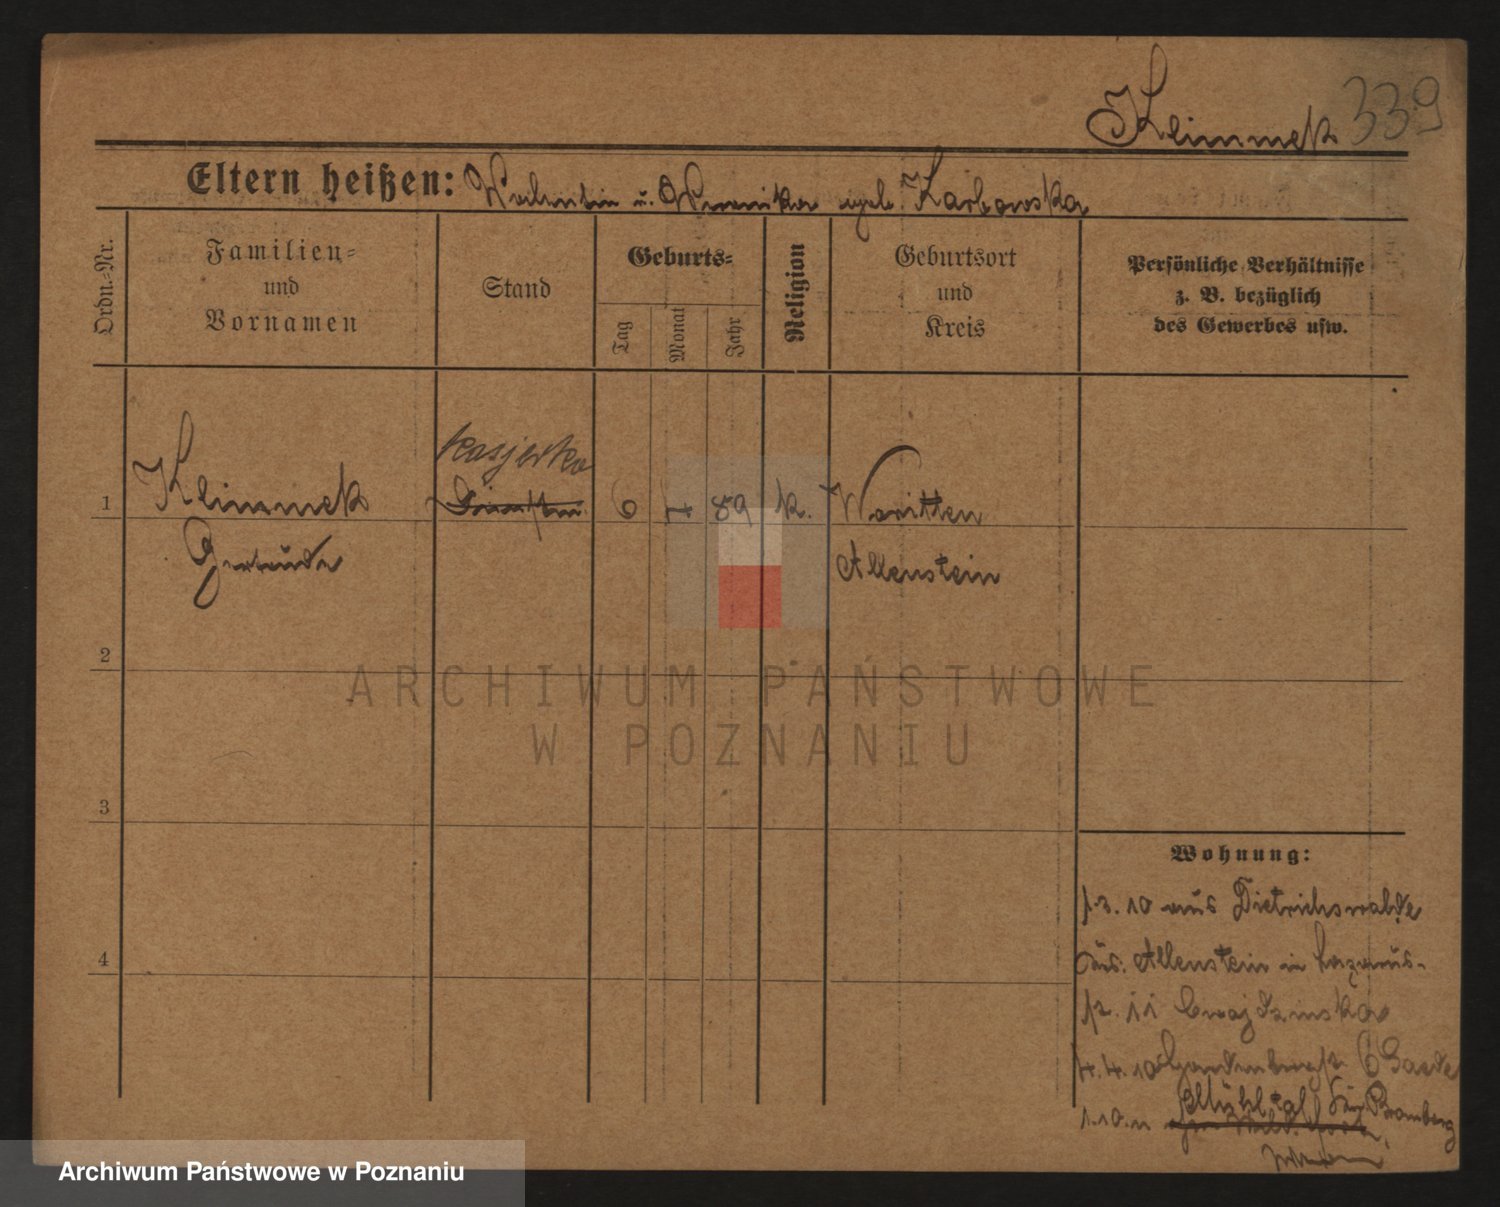 Klimmek 339
Eltern heißen: Valentin u. Weronika geb. Karbowska
Ordn.-Nr.
Familien-
und
Vornamen
Stand
Geburts-
Tag
Monat
Jahr
Religion
Geburtsort
und
Kreis
Persönliche Verhältnisse
z. B. bezüglich
des Gewerbes usw.
kasjerka
1 Klimmek 6 1 89 k. Woritten
Gertrude Allenstein
2
3
4
ARCHIWUM PAŃSTWOWE
W POZNANIU
Wohnung:
1.3.10 aus Dietrichswalde
Allenstein in Lazarus-
11
4.4.10 6 Gaede
1.10.11 Mühltal Bromberg
Archiwum Państwowe w Poznaniu